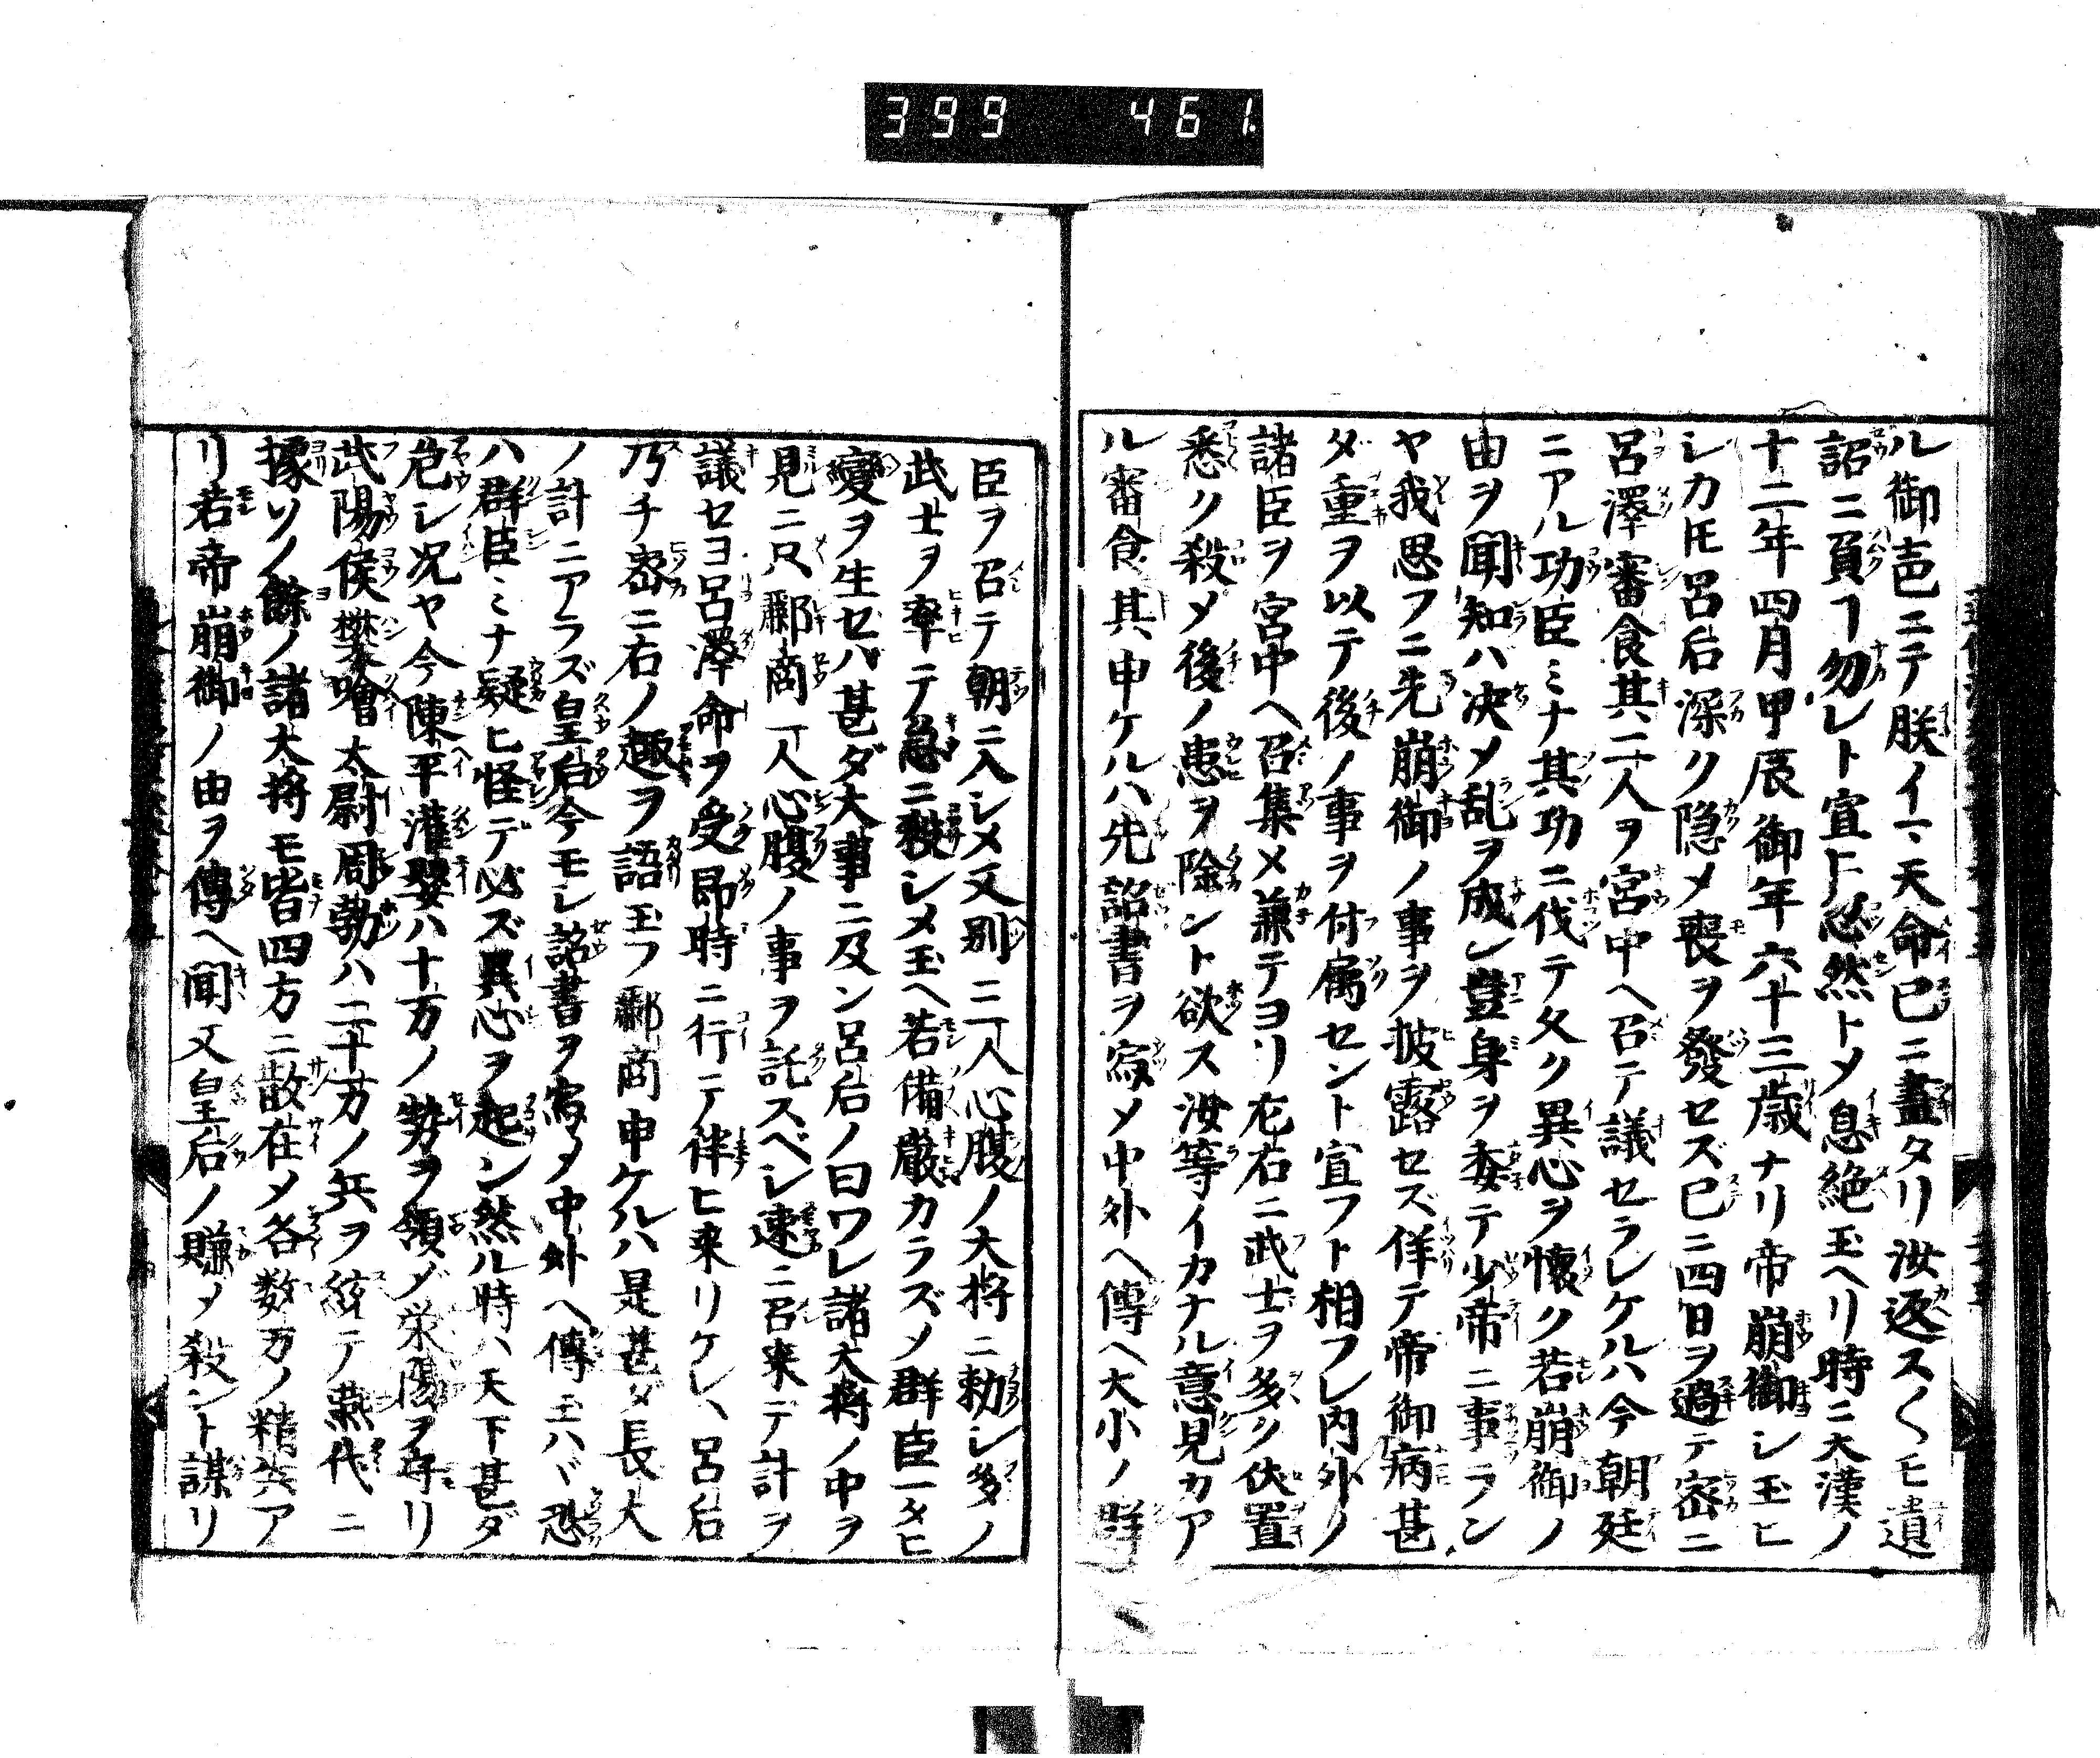 399 461.
ル御㐂ニテ朕イマ天命已ニ盡タリ汝返ス〱モ遺
詔ニ負ヿ勿レト宣ト忽然トメ息絶玉ヘリ時ニ大漢ノ
十二年四月甲辰御年六十三歳ナリ帝崩御シ玉ヒ
シカ𪜈呂后深ク隠メ喪ヲ發セズ已ニ四日ヲ過テ密ニ
呂澤審食其二人ヲ宮中ヘ召テ議セラレケルハ今朝廷
ニアル功臣ミナ其功ニ伐テ久ク異心ヲ懐ク若崩御ノ
由ヲ聞知ハ决メ乱ヲ成ン豈身ヲ委テ少帝ニ事ラン
ヤ我思フニ先崩御ノ事ヲ披露セズ佯テ帝御病甚
ダ重ヲ以テ後ノ事ヲ付属セント宣フト相フレ内外ノ
諸臣ヲ宮中ヘ召集メ兼テヨリ左右ニ武士ヲ多ク伏置
悉ク殺メ後ノ患ヲ除ント欲ス汝等イカナル意見カア
ル審食其申ケルハ先詔書ヲ寫メ中外ヘ傳ヘ大小ノ群
臣ヲ召テ朝ニ入シメ又別ニ一人心腹ノ大将ニ勅シ多ノ
武士ヲ率テ急ニ殺シメ玉ヘ若備嚴カラズメ群臣一タヒ
變ヲ生セバ甚ダ大事ニ及ン呂后ノ曰ワレ諸大将ノ中ヲ
見ニ只酈商一人心腹ノ事ヲ託スベシ速ニ召来テ計ヲ
議セヨ呂澤命ヲ受即時ニ行テ伴ヒ来リケレハ呂后
乃チ密ニ右ノ趣ヲ語玉フ酈商申ケルハ是甚ダ長大
ノ計ニアラズ皇后今モシ詔書ヲ寫メ中外ヘ傳玉ハヾ恐
ハ群臣ミナ疑ヒ怪デ必ズ異心ヲ起ン然ル時ハ天下甚ダ
危シ况ヤ今陳平灌嬰ハ十万ノ勢ヲ領メ栄陽ヲ守リ
武陽侯樊噲太尉周勃ハ二十万ノ兵ヲ統テ燕代ニ
據ソノ餘ノ諸大将モ皆四方ニ散在メ各数万ノ精兵ア
リ若帝崩御ノ由ヲ傳ヘ聞又皇后ノ賺メ殺ント謀リ